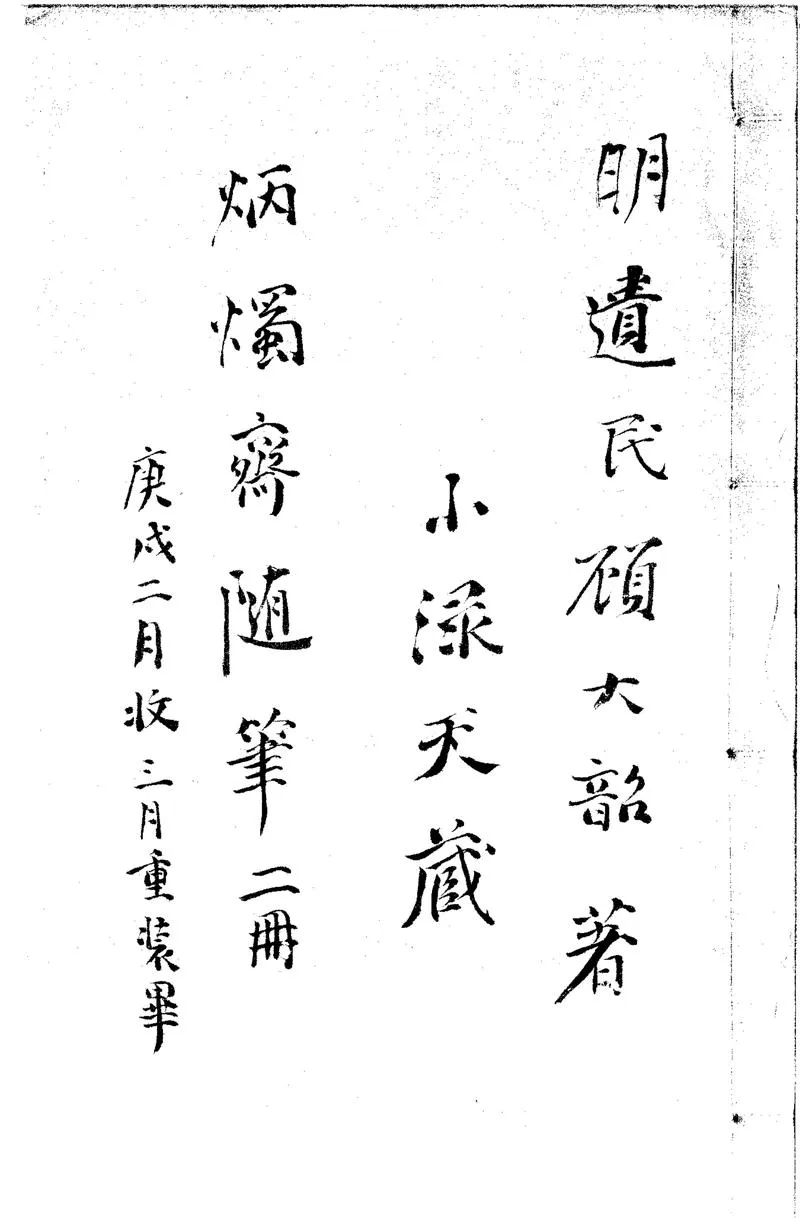 明遺民顧大韶著
小渌天藏
炳燭齋随筆二冊
庚戌二月收三月重装畢